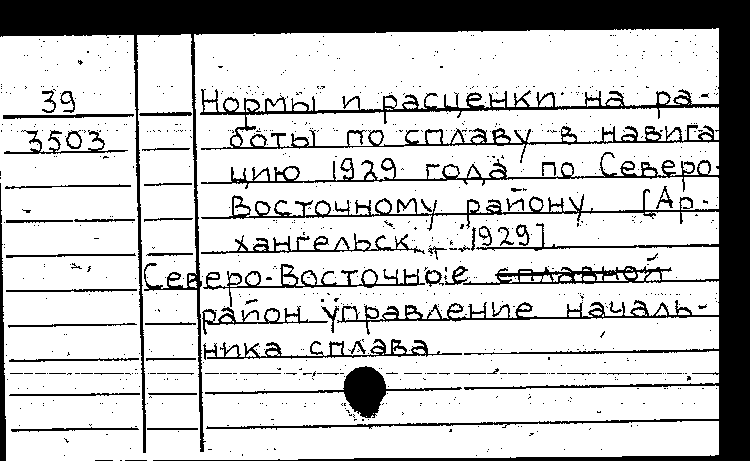 39 Нормы и расценки на ра-
3503 боты по сплаву в навига
цию 1929 года по Северо-
Восточному району. [Ар-
хангельск, 1929].
Северо-Восточное сплавной
район управление началь-
ника сплава.